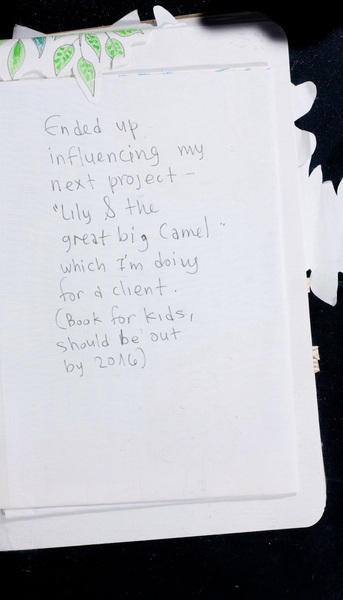 Ended up
influencing my
next project -
"Lily & the
great big Camel"
which I'm doing
for a client.
(Book for kids,
should be out
by 2016)